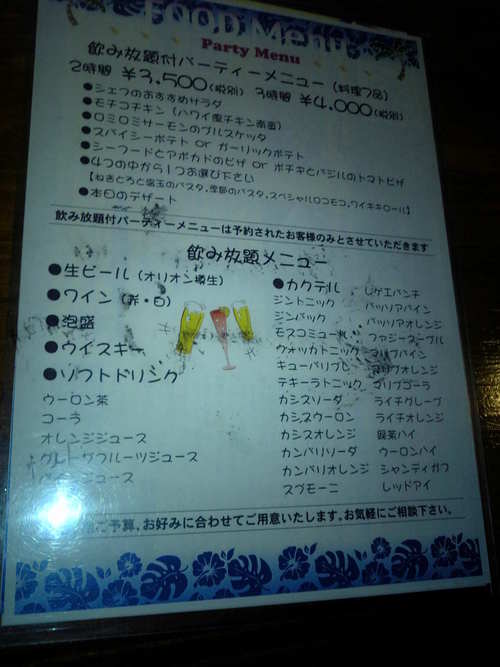 FOOD Menu
Party Menu
飲み放題付パーティーメニュー(料理7品)
2時間 ¥3,500(税別) 3時間 ¥4,000(税別)
●シェフのおすすめサラダ
●モチコチキン(ハワイ風チキン南蛮)
●ロミロミサーモンのブルスケッタ
●スパイシーポテト or ガーリックポテト
●シーフードとアボカドのピザ or ポチキとバジルのトマトピザ
●4つの中から1つお選び下さい
【ねぎとろと温玉のパスタ,季節のパスタ,スペシャルロコモコ,ワイキキロール】
●本日のデザート
飲み放題付パーティーメニューは予約されたお客様のみとさせていただきます
飲み放題メニュー
●生ビール(オリオン樽生)
●ワイン(赤・白)
●泡盛
●ウイスキー
●ソフトドリンク
ウーロン茶
コーラ
オレンジジュース
グレープフルーツジュース
ジュース
●カクテル
ジントニック
ジンバック
モスコミュール
ウォッカトニック
キューバリブレ
テキーラトニック
カシスソーダ
カシスウーロン
カシスオレンジ
カンパリソーダ
カンパリオレンジ
スプモーニ
レゲエパンチ
パッソアパイン
パッソアオレンジ
ファジーネーブル
マリブパイン
マリブオレンジ
マリブコーラ
ライチグレープ
ライチオレンジ
緑茶ハイ
ウーロンハイ
シャンディガフ
レッドアイ
ご予算,お好みに合わせてご用意いたします。お気軽にご相談下さい。